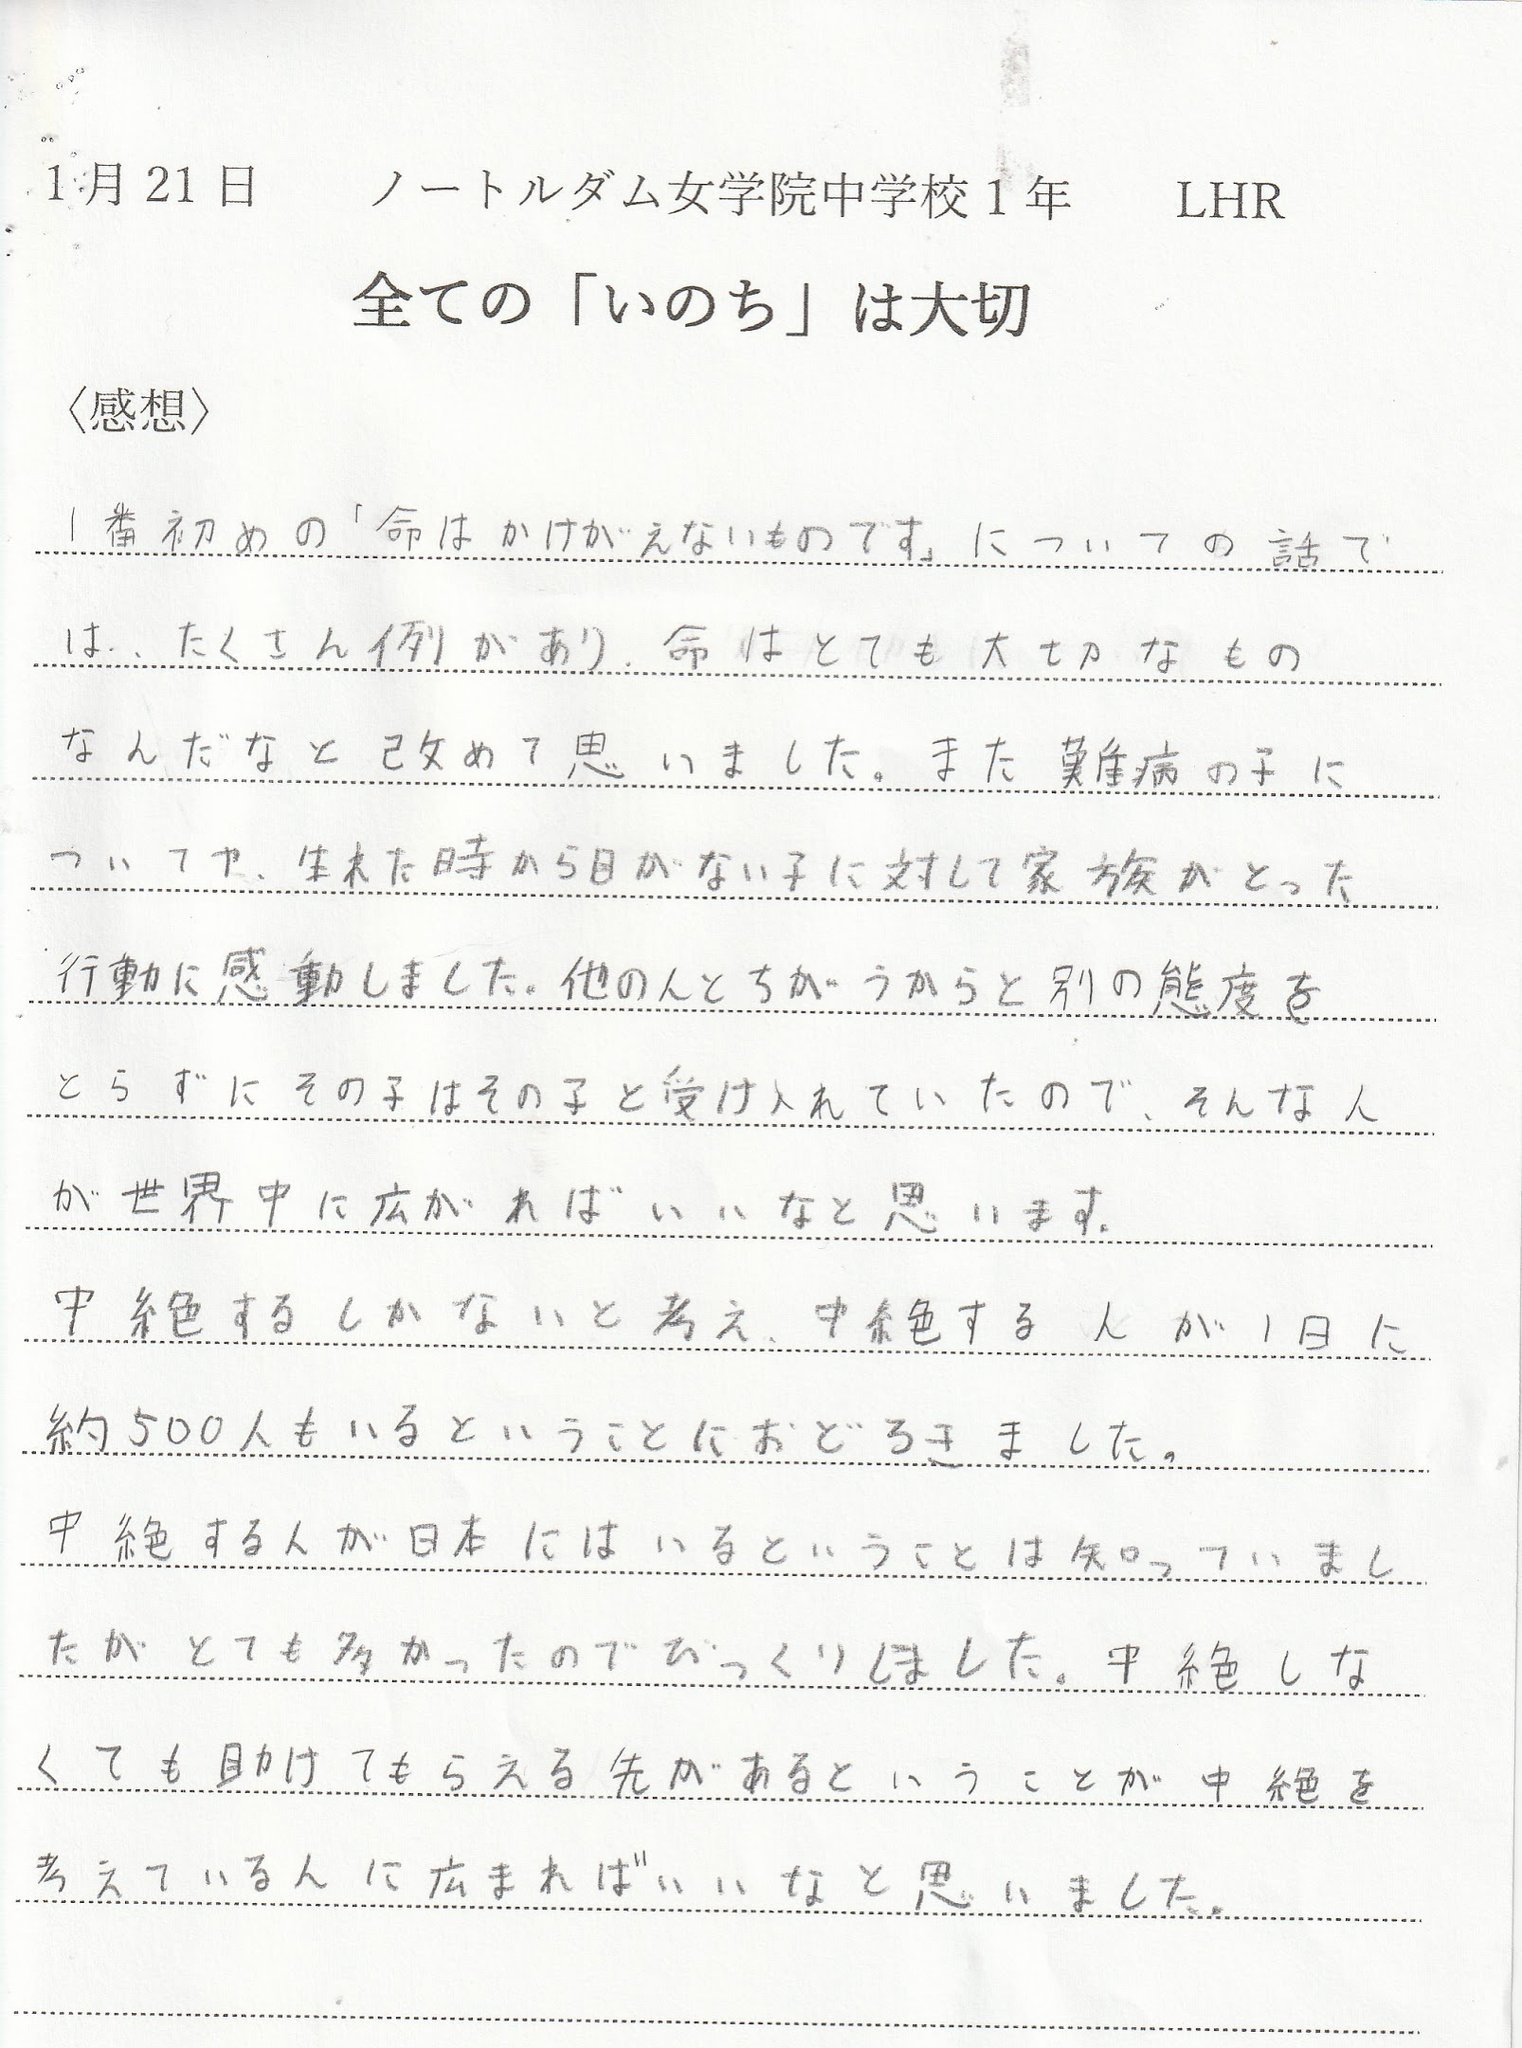 1月21日 ノートルダム女学院中学校1年 LHR
全ての「いのち」は大切
〈感想〉
1番初めの「命はかけがえないものです」についての話で
は、たくさん例があり、命はとても大切なもの
なんだなと改めて思いました。また難病の子に
ついてや、生れた時から目がない子に対して家族がとった
行動に感動しました。他の人とちがうからと別の態度を
とらずにその子はその子と受け入れていたので、そんな人
が世界中に広がればいいなと思います。
中絶するしかないと考え、中絶する人が1日に
約500人もいるということにおどろきました。
中絶する人が日本にはいるということは知っていまし
たがとても多かったのでびっくりしました。中絶しな
くても助けてもらえる先があるということが中絶を
考えている人に広まればいいなと思いました。